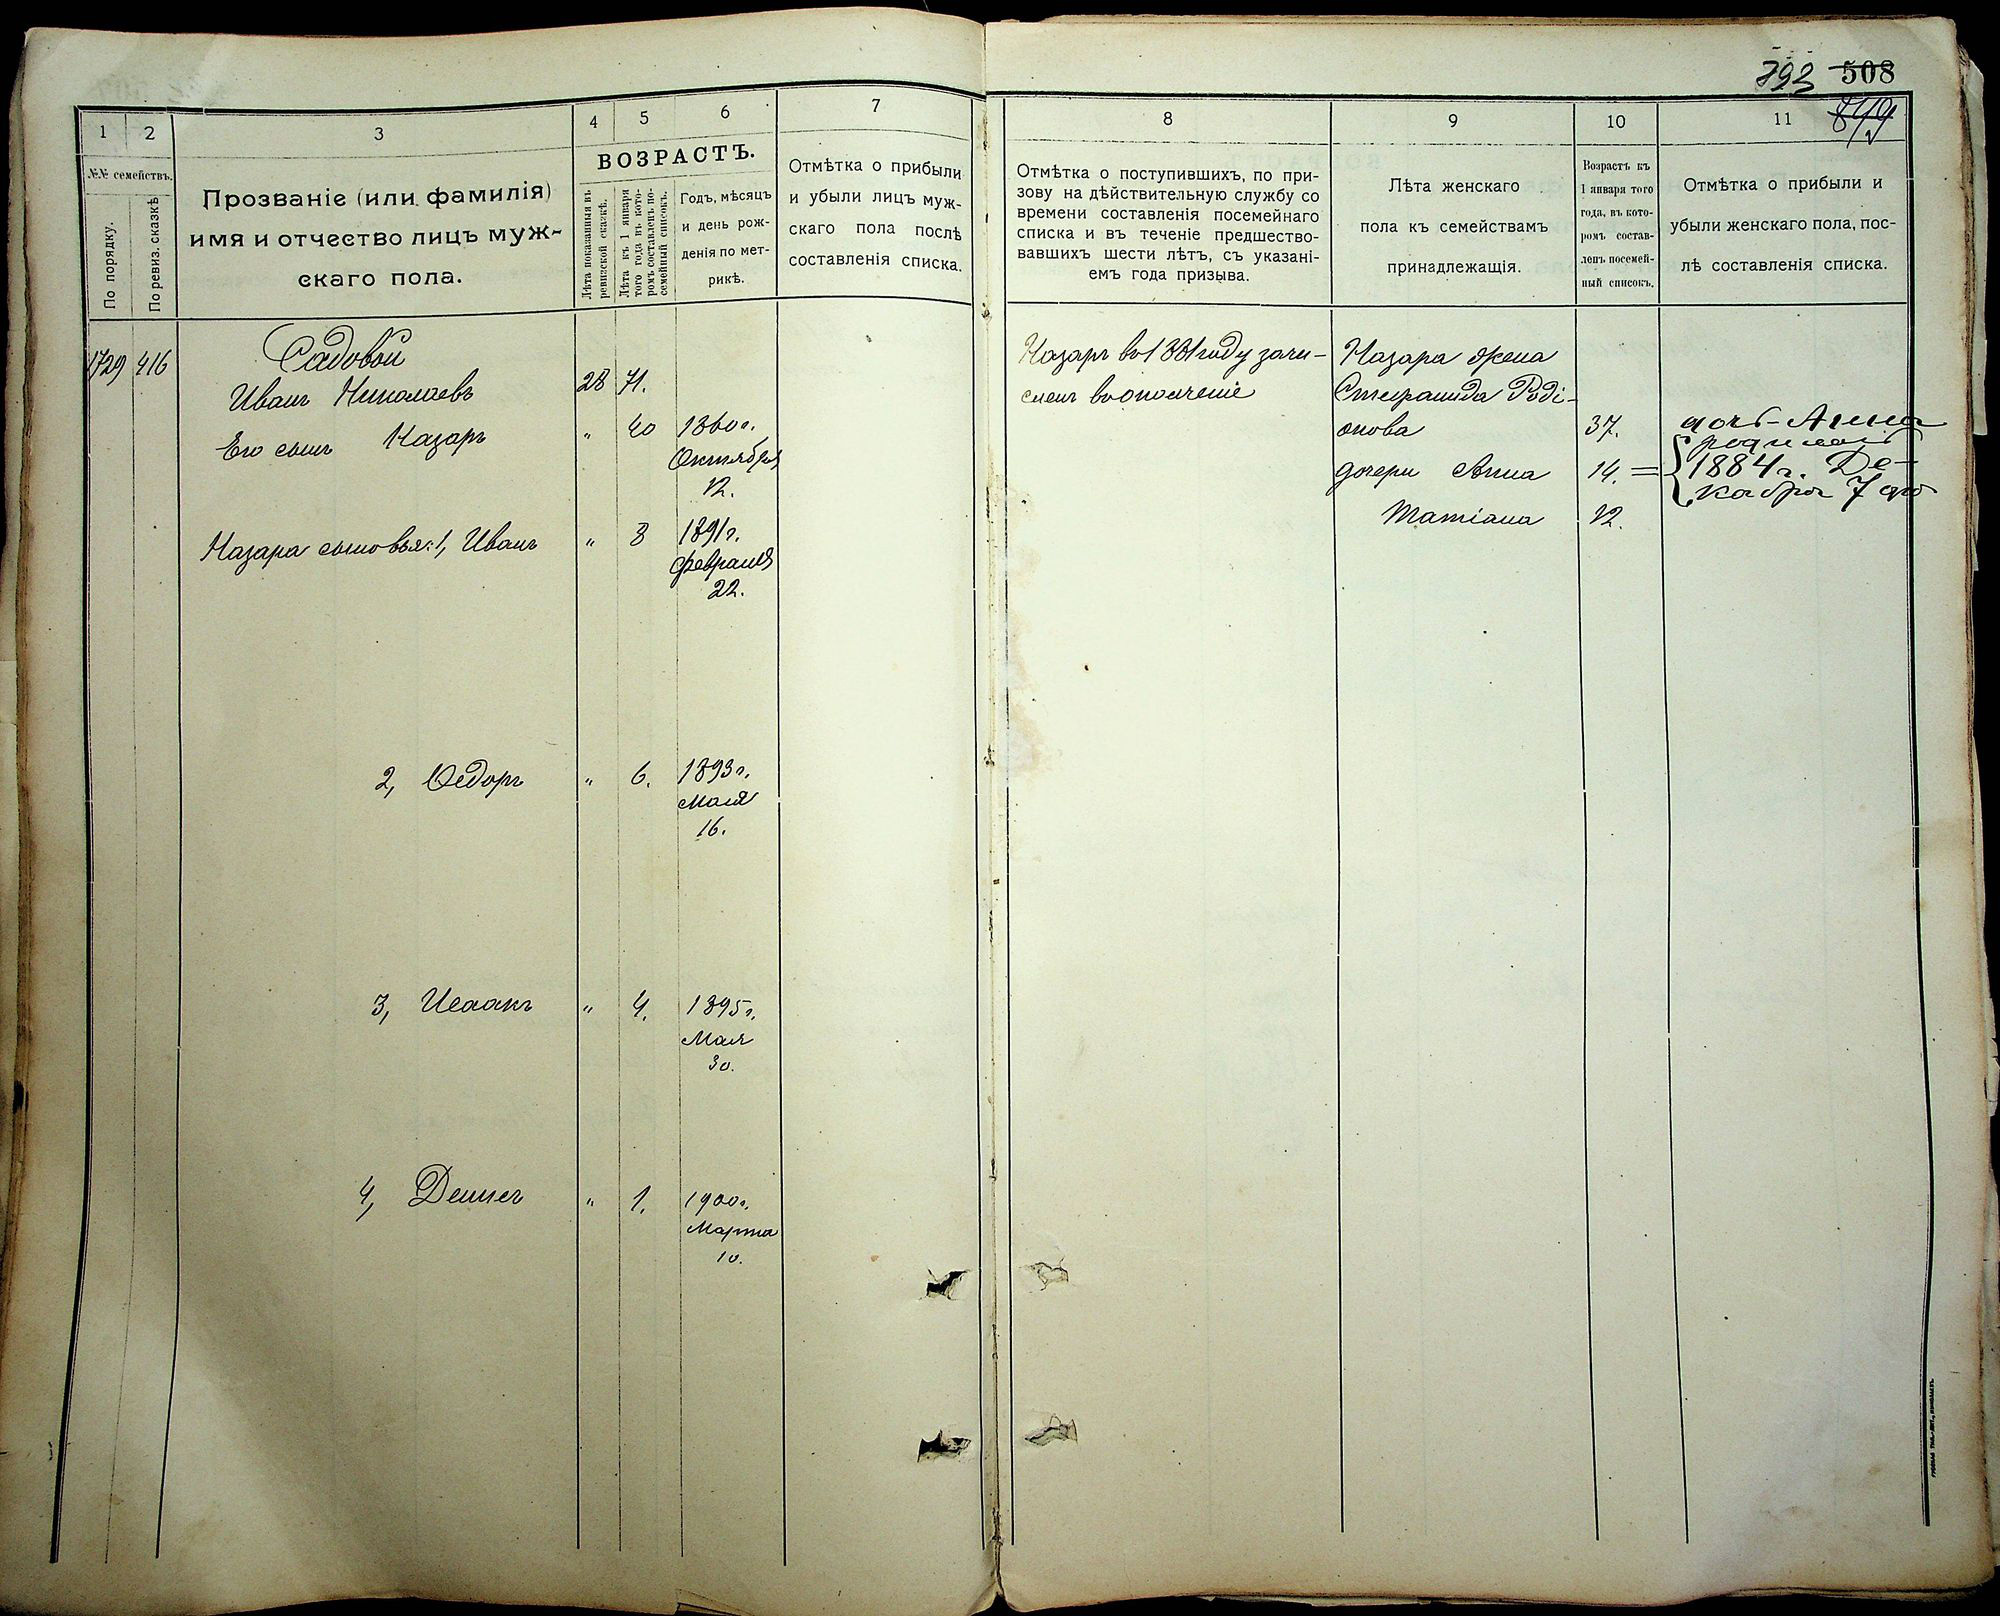 793 508
849
1
2
3
4
5
6
7
№№ семействъ.
По порядку.
По ревиз. сказкѣ
Прозваніе (или фамилія)
имя и отчество лицъ муж-
скаго пола.
ВОЗРАСТЪ.
Лѣта показанныя въ
ревизской сказкѣ.
Лѣта къ 1 января
того года въ кото-
ромъ составленъ по-
семейный списокъ.
Годъ, мѣсяцъ
и день рож-
денія по мет-
рикѣ.
Отмѣтка о прибыли
и убыли лицъ муж-
скаго пола послѣ
составленія списка.
1729 416 Садовой
Иванъ Николаевъ 28 71.
Его сынъ Назаръ " 40 1860 г.
Октября
12.
Назара сыновья: 1, Иванъ " 8 1891 г.
Февраля
22.
2, Ѳедоръ " 6. 1893 г.
Мая
16.
3, Исаакъ " 4. 1895 г.
Мая
30.
4, Денисъ " 1. 1900 г.
Марта
10.
8
9
10
11
Отмѣтка о поступившихъ, по при-
зову на дѣйствительную службу со
времени составленія посемейнаго
списка и въ теченіе предшество-
вавшихъ шести лѣтъ, съ указані-
емъ года призыва.
Лѣта женскаго
пола къ семействамъ
принадлежащія.
Возрастъ къ
1 января того
года, въ кото-
ромъ состав-
ленъ посемей-
ный списокъ.
Отмѣтка о прибыли и
убыли женскаго пола, пос-
лѣ составленія списка.
Назаръ въ 1881 году зачи-
сленъ въ ополченіе
Назара жена
Степанида Роді-
онова 37.
дочери Анна 14. =
Татіана 12.
дочь Анна
родилась
1884 г. Де-
кабря 7 дня